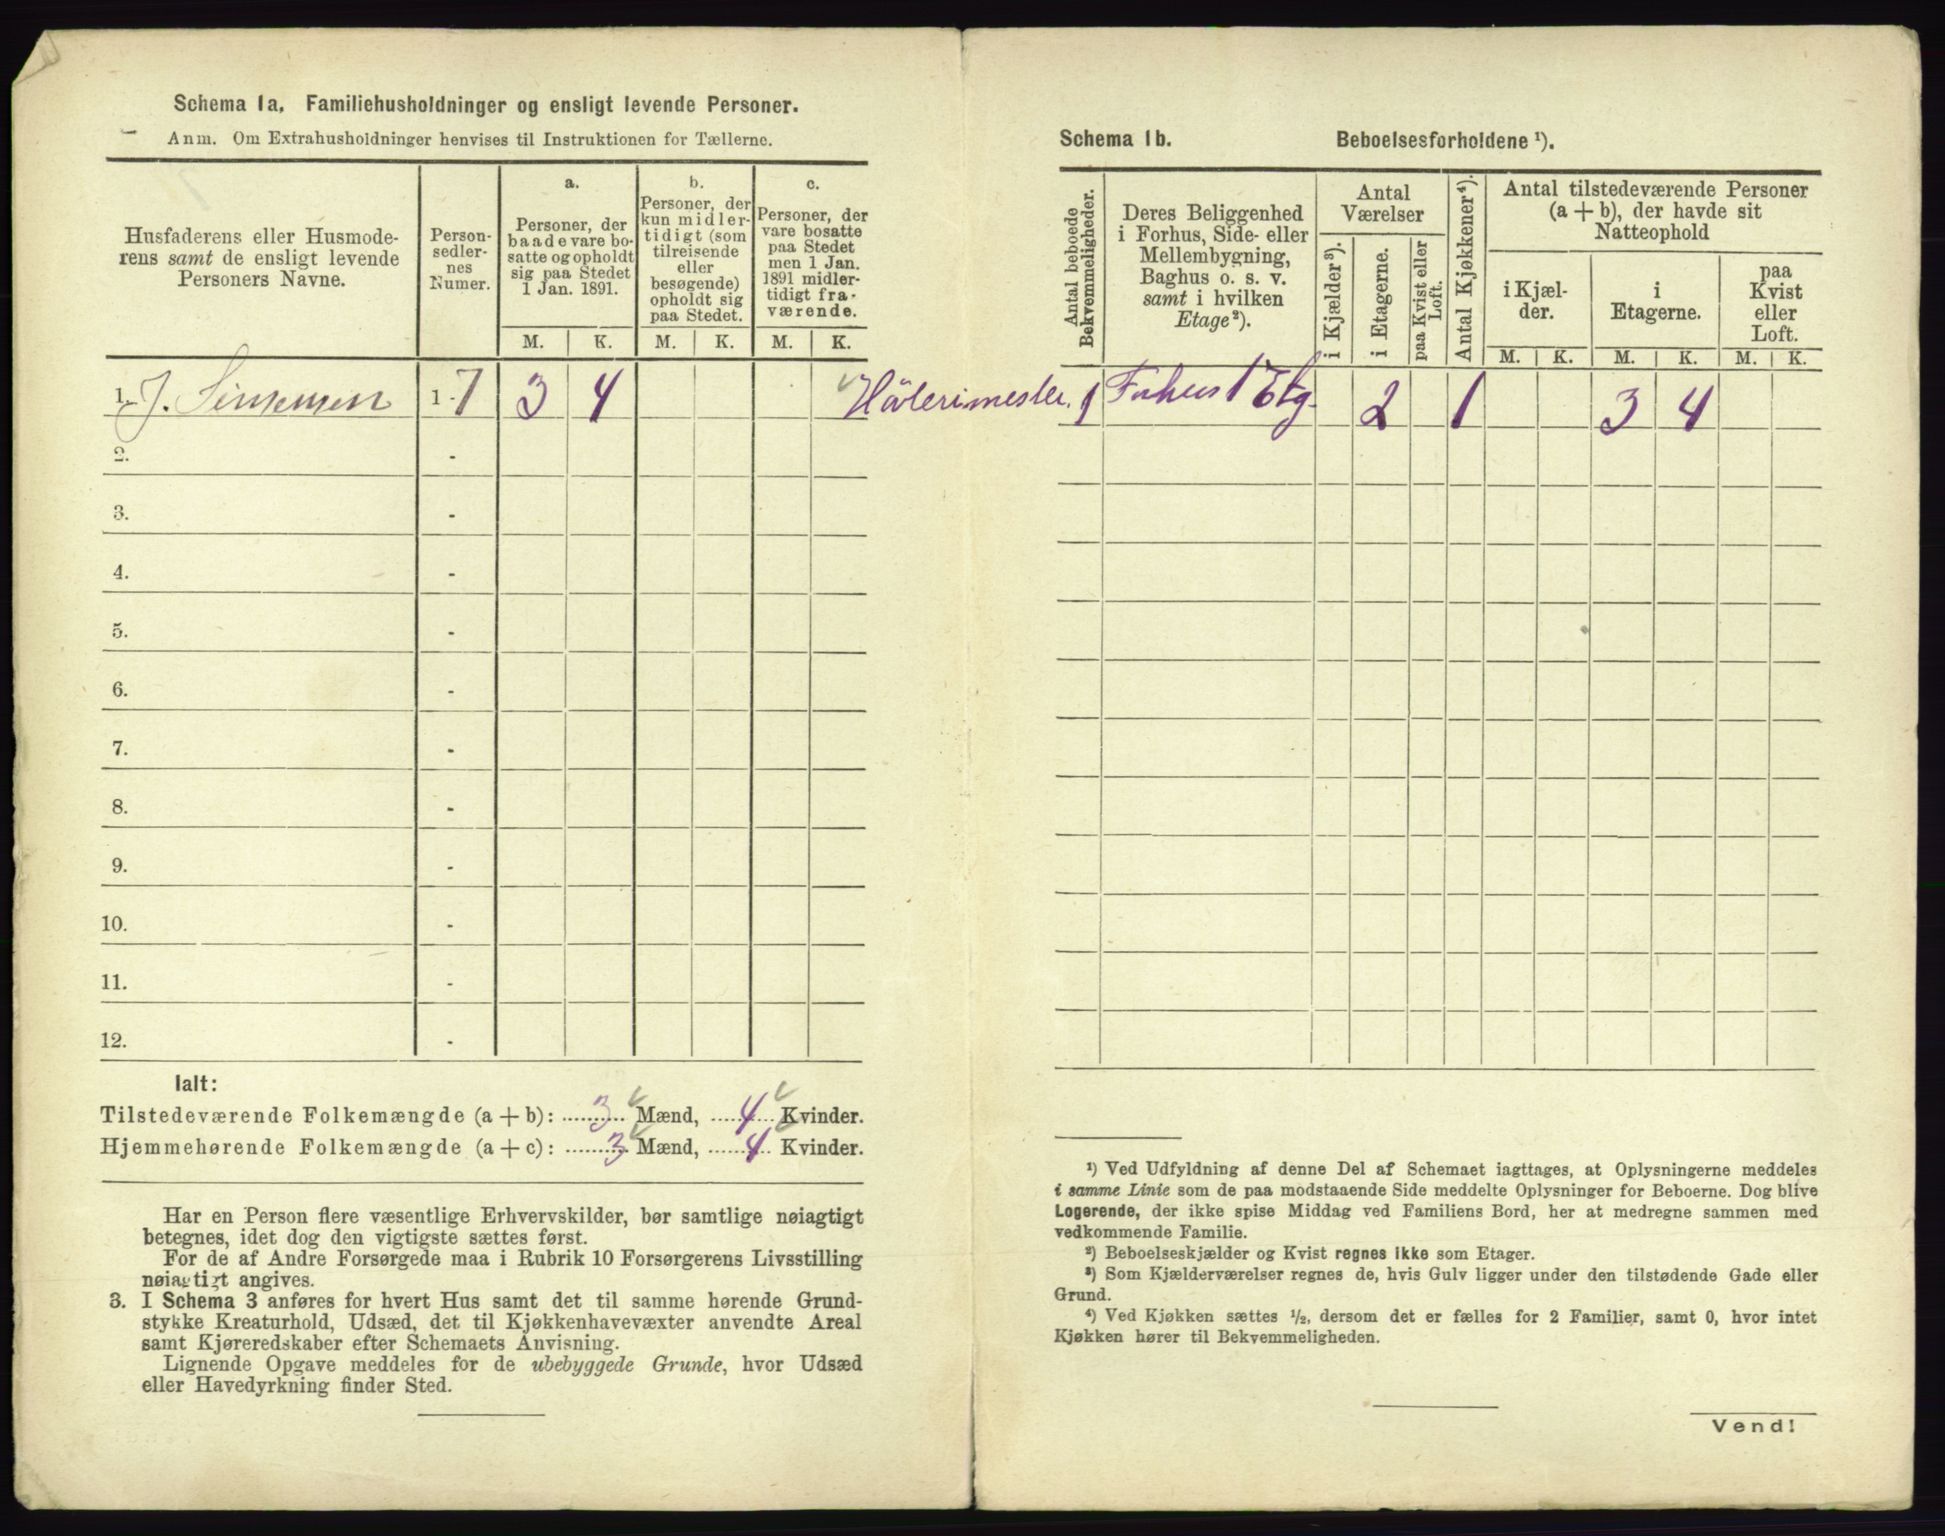 Schema 1a. Familiehusholdninger og ensligt levende Personer.
Anm. Om Extrahusholdninger henvises til Instruktionen for Tællerne.
Husfaderens eller Husmode-
rens samt de ensligt levende
Personers Navne.
Person-
sedler-
nes
Numer.
a.
Personer, der
baade vare bo-
satte og opholdt
sig paa Stedet
1 Jan. 1891.
b.
Personer, der
kun midler-
tidigt (som
tilreisende
eller
besøgende)
opholdt sig
paa Stedet.
c.
Personer, der
vare bosatte
paa Stedet
men 1 Jan.
1891 midler-
tidigt fra-
værende.
M. K. M. K. M. K.
1. J. Simensen 1 - 7 3 4
2. -
3. -
4. -
5. -
6. -
7. -
8. -
9. -
10. -
11. -
12. -
Ialt:
Tilstedeværende Folkemængde (a + b): 3 Mænd, 4 Kvinder.
Hjemmehørende Folkemængde (a + c): 3 Mænd, 4 Kvinder.
Har en Person flere væsentlige Erhvervskilder, bør samtlige nøiagtigt
betegnes, idet dog den vigtigste sættes først.
For de af Andre Forsørgede maa i Rubrik 10 Forsørgerens Livsstilling
nøiagtigt angives.
3. I Schema 3 anføres for hvert Hus samt det til samme hørende Grund-
stykke Kreaturhold, Udsæd, det til Kjøkkenhavevæxter anvendte Areal
samt Kjøreredskaber efter Schemaets Anvisning.
Lignende Opgave meddeles for de ubebyggede Grunde, hvor Udsæd
eller Havedyrkning finder Sted.
Schema 1b. Beboelsesforholdene ¹).
Antal beboede
Bekvemmeligheder.
Deres Beliggenhed
i Forhus, Side- eller
Mellembygning,
Baghus o. s. v.
samt i hvilken
Etage²).
Antal
Værelser
i Kjælder³).
i Etagerne.
paa Kvist eller
Loft.
Antal Kjøkkener⁴).
Antal tilstedeværende Personer
(a + b), der havde sit
Natteophold
i Kjæl-
der.
i
Etagerne.
paa
Kvist
eller
Loft.
M. K. M. K. M. K.
1 Forhus 1 Etg. 2 1 3 4
¹) Ved Udfyldning af denne Del af Schemaet iagttages, at Oplysningerne meddeles
i samme Linie som de paa modstaaende Side meddelte Oplysninger for Beboerne. Dog blive
Logerende, der ikke spise Middag ved Familiens Bord, her at medregne sammen med
vedkommende Familie.
²) Beboelseskjælder og Kvist regnes ikke som Etager.
³) Som Kjælderværelser regnes de, hvis Gulv ligger under den tilstødende Gade eller
Grund.
⁴) Ved Kjøkken sættes ½, dersom det er fælles for 2 Familier, samt 0, hvor intet
Kjøkken hører til Bekvemmeligheden.
Vend!